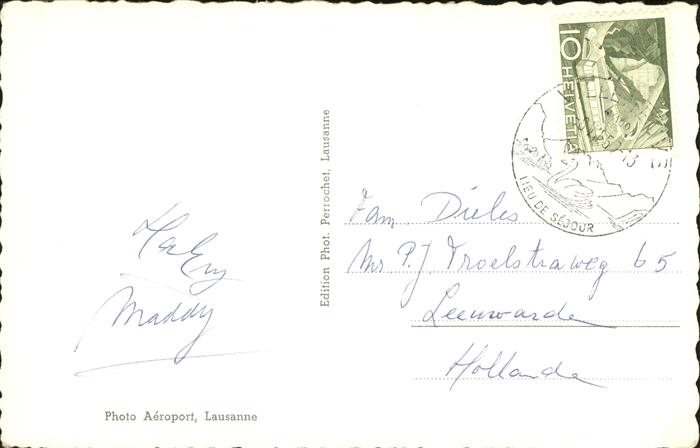 10 HELVETIA
LIEU DE SÉJOUR
Edition Phot. Perrochet, Lausanne
Maddy
Fam. Dieles
Mr. P. J. Troelstraweg 65
Leeuwarden
Hollande
Photo Aéroport, Lausanne